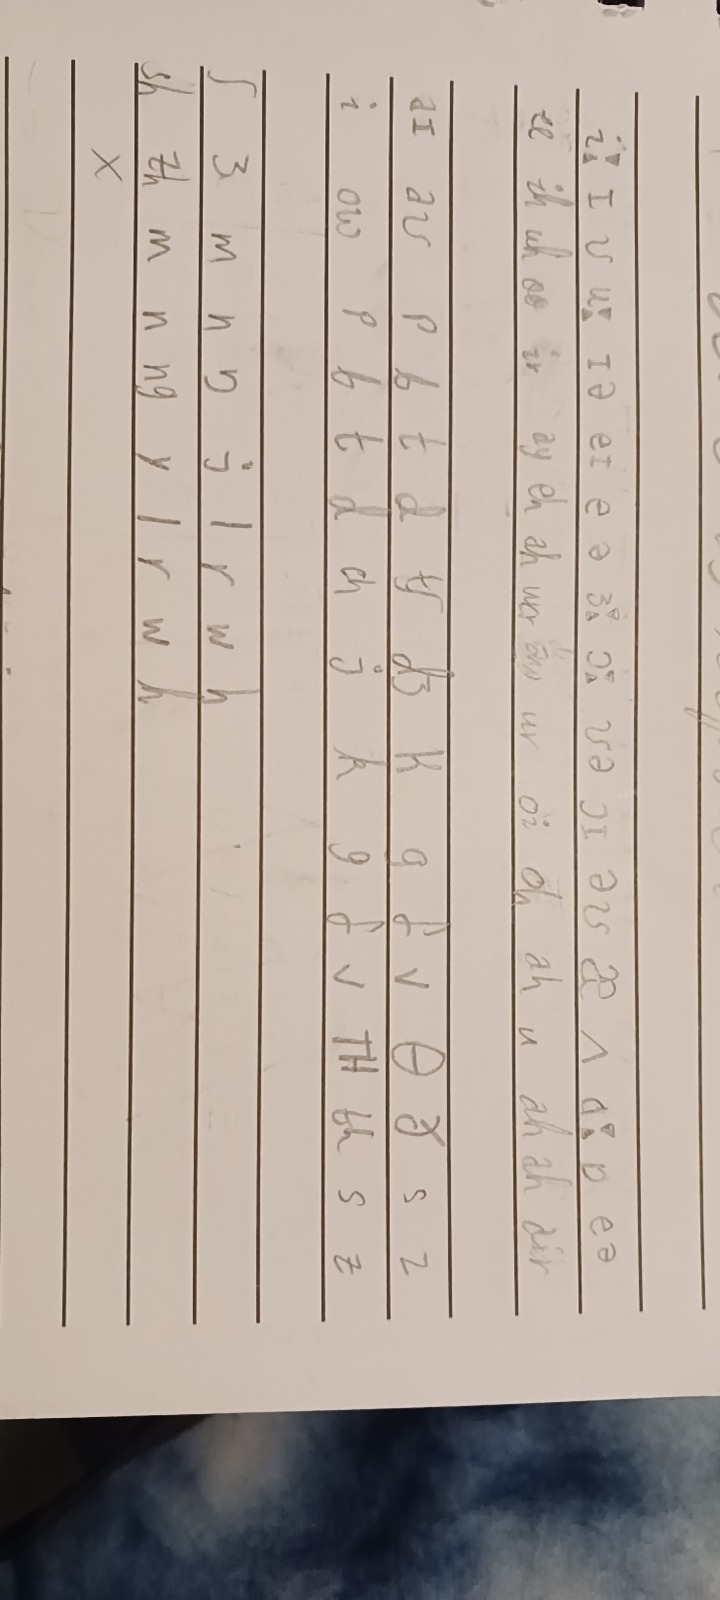 iː I ʊ uː Iə eI e ə ɜː ɔː ʊə ɔI əʊ æ ʌ ɑː ɒ eə
ee ih uh oo ir ay eh ah ur oi oh ah u ah ah
aI aʊ p b t d tʃ dʒ k g f v θ ð s z
i ow p b t d ch j k g f v TH th s z
ʃ ʒ m n ŋ j l r w h
sh zh m n ng y l r w h
x